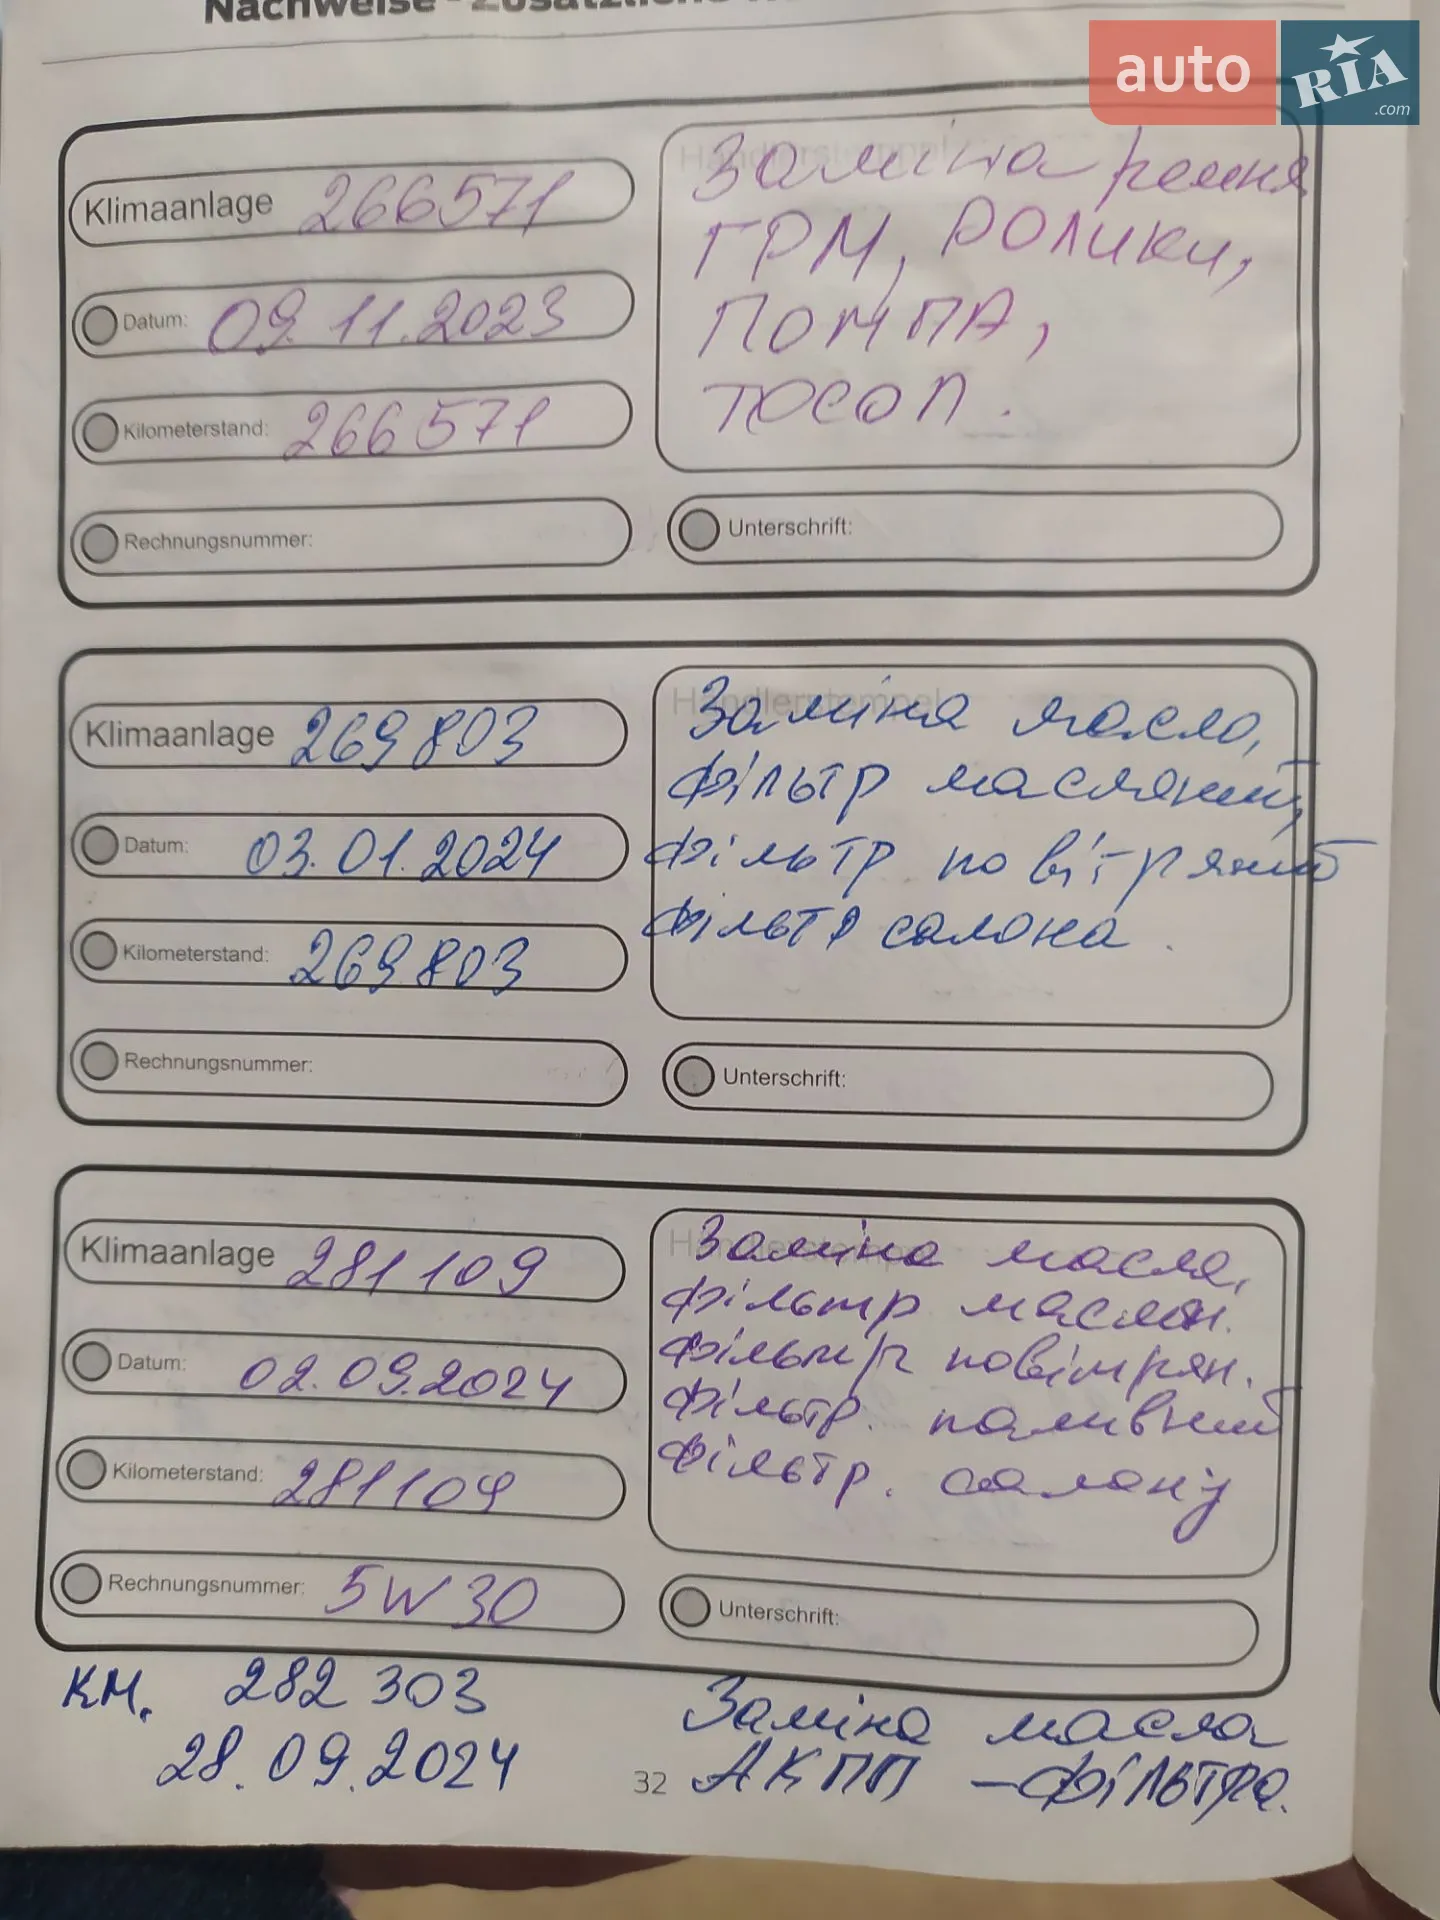 Nachweise - Zusätzliche
auto RIA .com
Klimaanlage 266571
Datum: 09.11.2023
Kilometerstand: 266571
Rechnungsnummer:
Händlerstempel
Заміна ремня
ГРМ, ролики,
ПОМПА,
тосол.
Unterschrift:
Klimaanlage 269803
Datum: 03.01.2024
Kilometerstand: 269803
Rechnungsnummer:
Händlerstempel
Заміна масло,
фільтр масляний,
фільтр повітряний
фільтр салона.
Unterschrift:
Klimaanlage 281109
Datum: 02.09.2024
Kilometerstand: 281109
Rechnungsnummer: 5W30
Händlerstempel
Заміна масла,
фільтр маслян.
фільтр повітрян.
фільтр. паливний
фільтр. салону
Unterschrift:
км. 282 303
28.09.2024
Заміна масла
АКПП - фільтра.
32